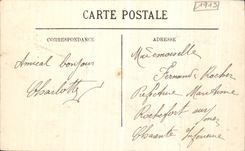 1913
CARTE POSTALE
CORRESPONDANCE
ADRESSE
Amical bonjour
Charlotte
Mademoiselle
Fernande Rocher
Rochefort sur
mer
Charente Inférieure